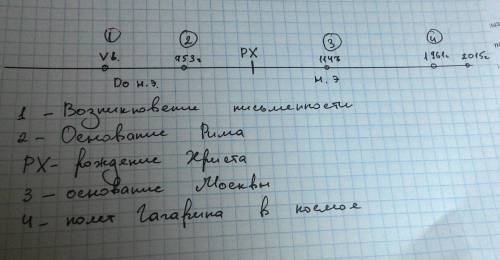 ① ② ③ ④
V в. 953г РХ 1147 1961г 2015г
До н.э. н.э
1 - Возникновение письменности
2 - Основание Рима
РХ - рождение Христа
3 - основание Москвы
4 - полет Гагарина в космос